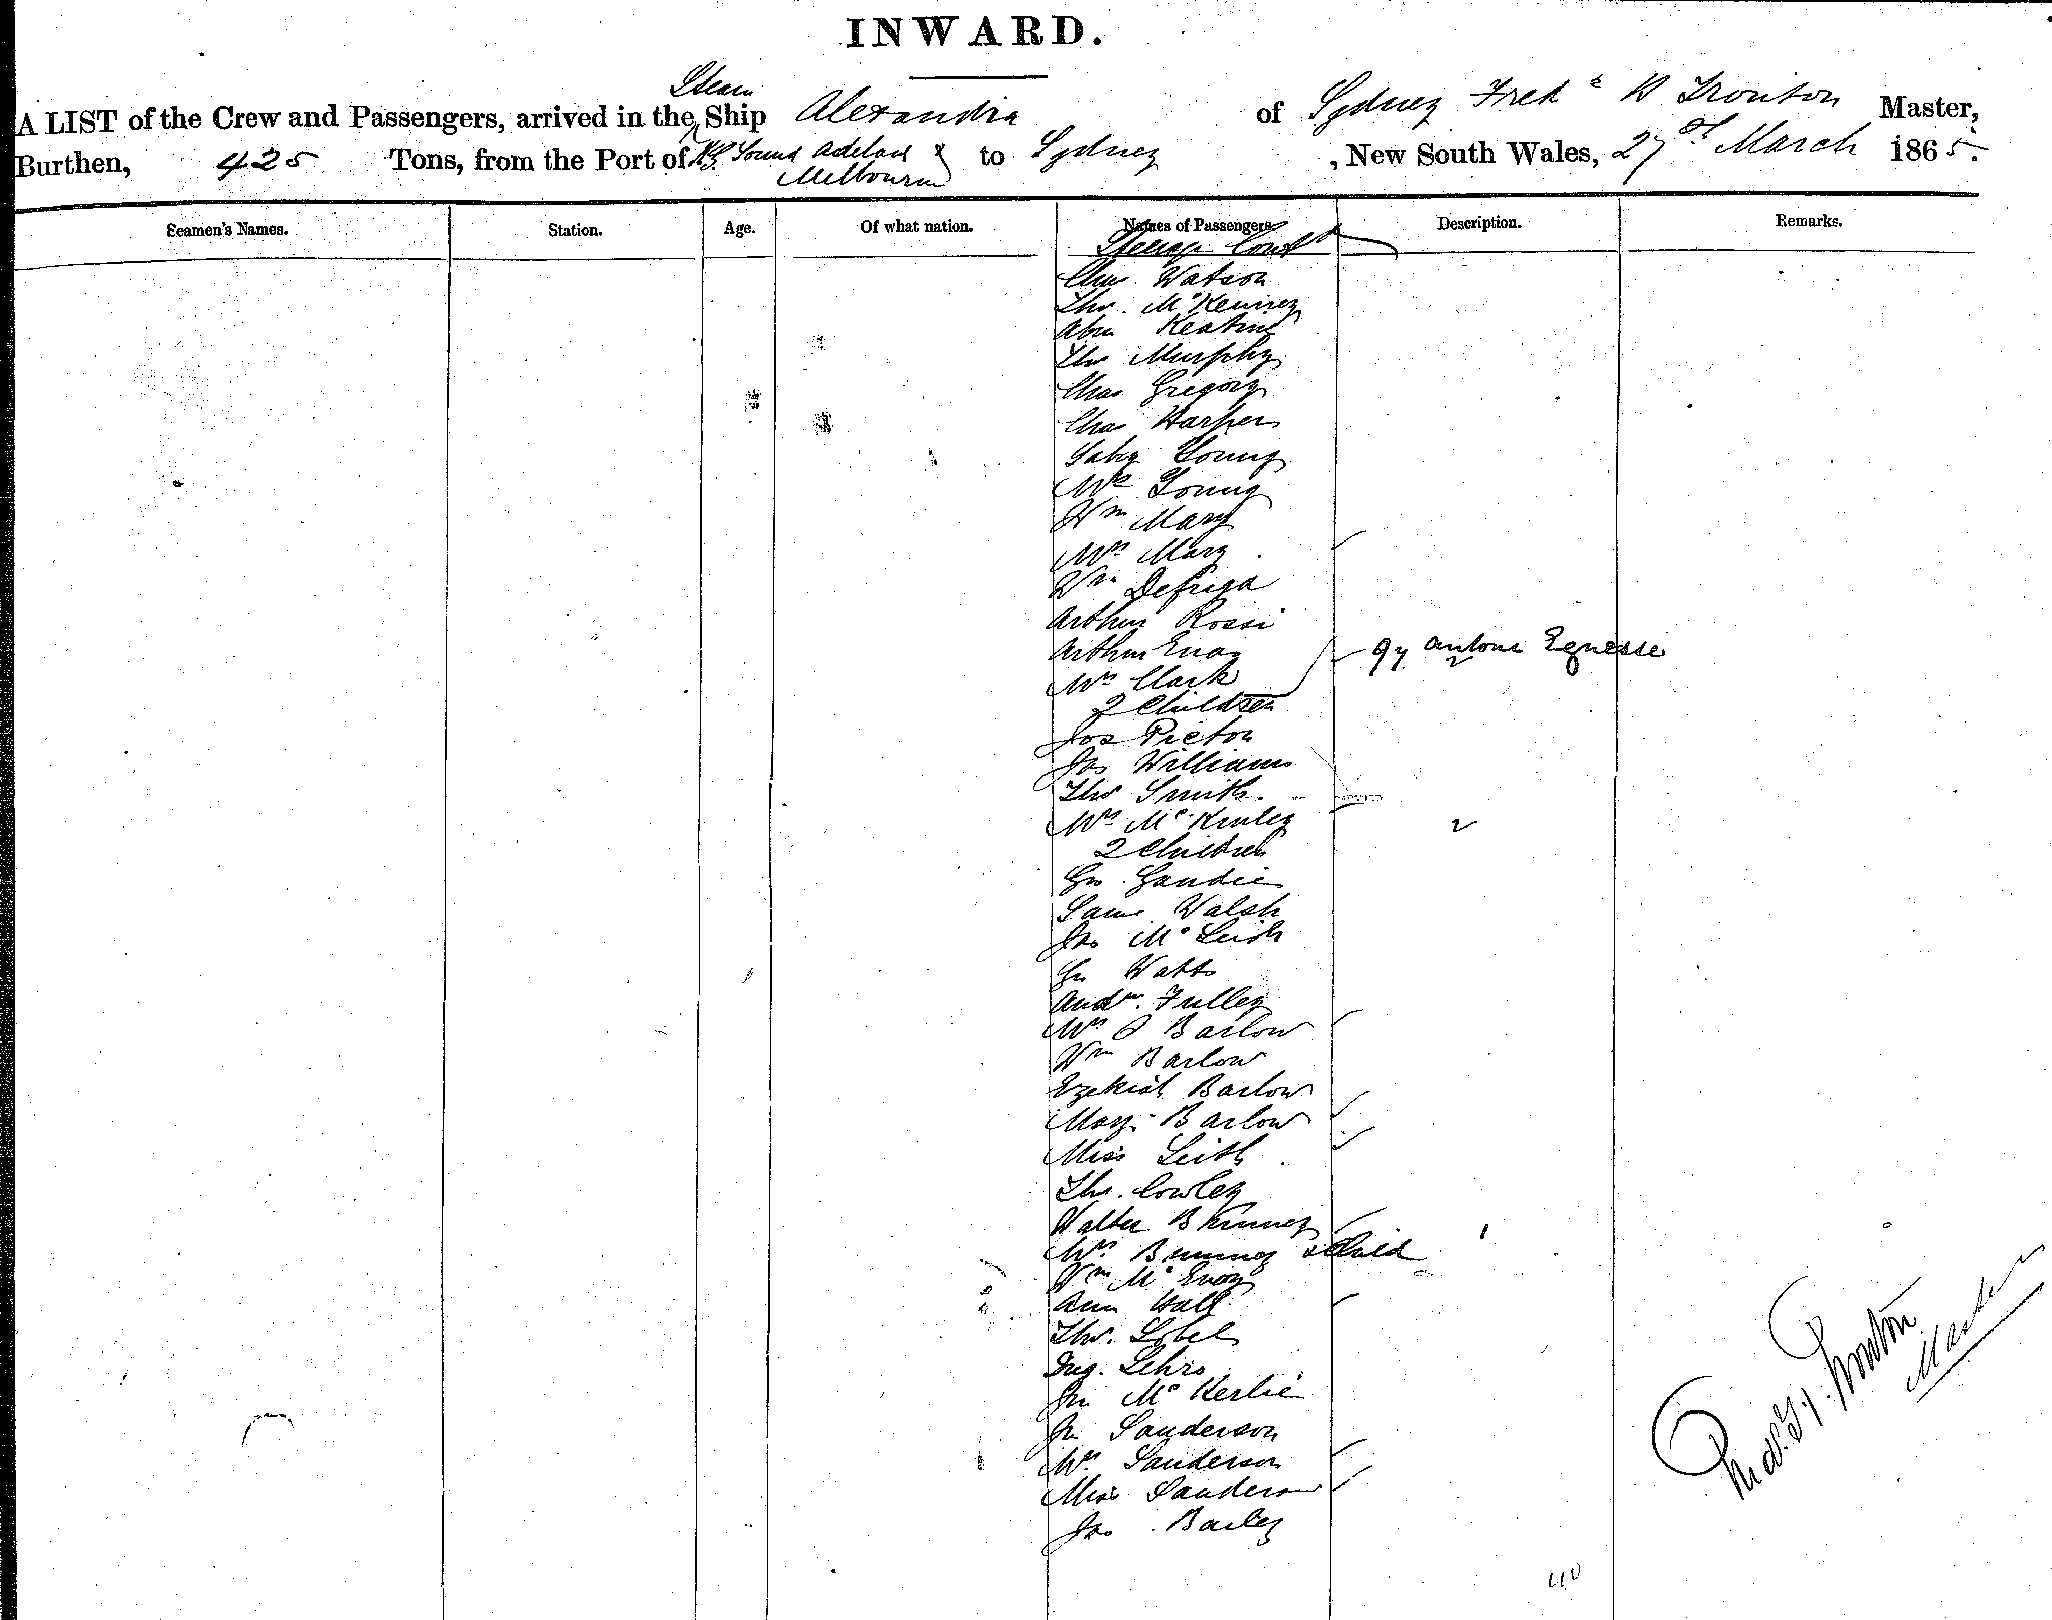 INWARD.
A LIST of the Crew and Passengers, arrived in the Steam Ship Alexandra of Sydney Fredk H Trouton Master,
Burthen, 425 Tons, from the Port of KG Sound Adelaid & Melbourne to Sydney , New South Wales, 27th March 1865.
Seamen's Names. Station. Age. Of what nation. Names of Passengers. Description. Remarks.
Steerage Contd
Watson
Thos. McKenney
Abm Keating
Thos Murphy
Chas Gregory
Chas Harper
Young
Mrs Young
Wm Mary
Mrs Mary
Wm
Arthur Rossi
Arthur Evoy
Mrs Clark
2 Children
Jos Picton
Jas Williams
Thos Smith.
Mrs McKinley
2 Children
Geo. Gandie
Saml Walsh
Jas McLeish
Geo Watts
Andw. Fulley
Mrs J Barlow
Wm Barlow
Ezekiel Barlow
Mary Barlow
Miss Leith
Thos. Cowley
Walter B
Mrs & Child
Wm McEvoy
Ann Hall
Thos. Lobel
Aug. Lehrs
Jno McKerlie
Jno Sanderson
Mrs Sanderson
Miss Sanderson
Jas. Bailey
Fredk. H. Trouton
Master